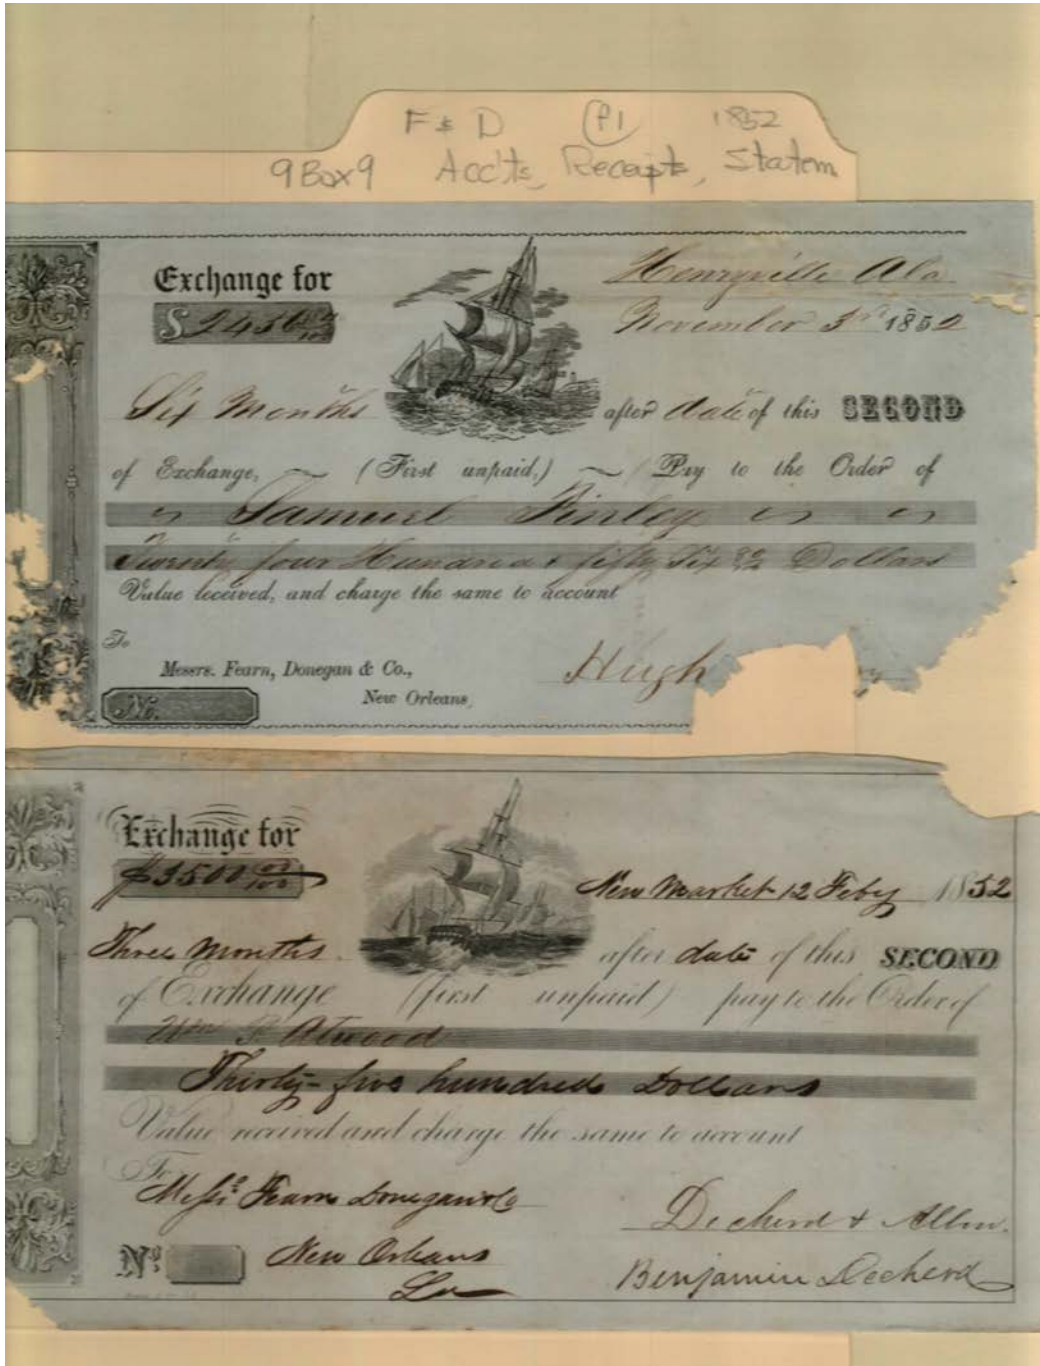 F & D (P1) 1852
9 Box 9 Accts, Receipts, Statem
Exchange for
Henryville Ala
$2456
November 3rd 1852
Six Months after date of this SECOND
of Exchange, (First unpaid.) Pay to the Order of
Samuel Finley
Twenty four Hundred & fifty Six Dollars
Value received, and charge the same to account
To
Messrs. Fearn, Donegan & Co.,
Hugh
New Orleans,
No.
Exchange for
$3500 00/100
New Market 12 Feby 1852
Three Months after date of this SECOND
of Exchange (first unpaid) pay to the Order of
Wm P. Atwood
Thirty-five hundred Dollars
Value received and charge the same to account
To
Messrs Fearn Donegan & Co
Decherd & Allen.
No New Orleans
La
Benjamin Decherd